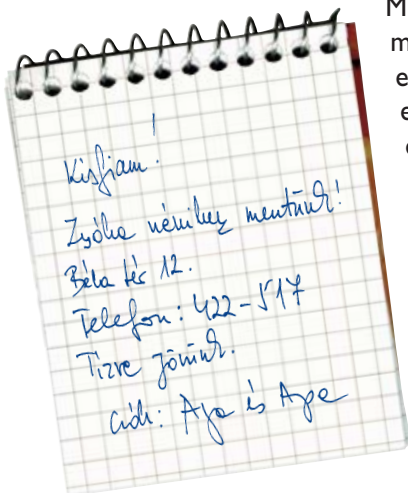 Kisfiam!
Zsóka nénihez mentünk!
Béla tér 12.
Telefon: 422-517
Tízre jövünk.
Csók: Anya és Apa
M
m
e
e